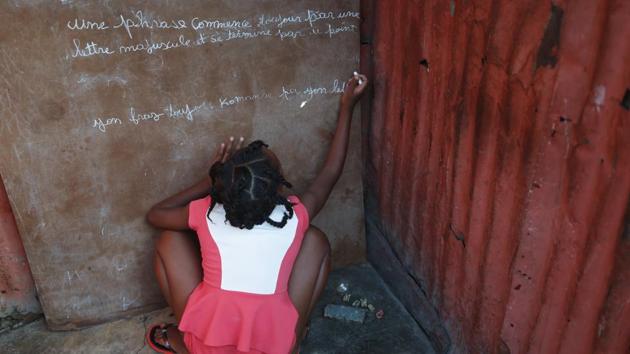 Une phrase commence toujour par une
lettre majuscule et se termine par u point
yon fraz toujou komanse pa yon let